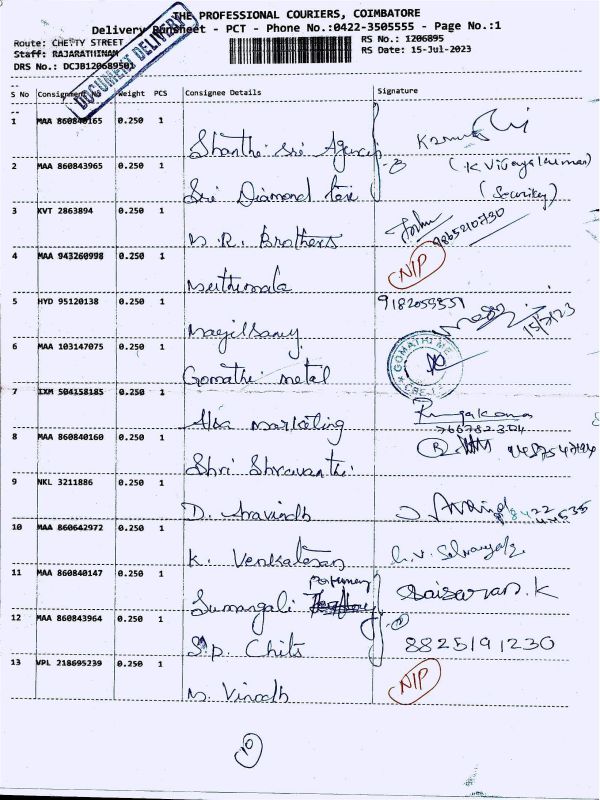 THE PROFESSIONAL COURIERS, COIMBATORE
Delivery Runsheet - PCT - Phone No.:0422-3505555 - Page No.:1
Route: CHETTY STREET
RS No.: 1206895
Staff: RAJARATHINAM
RS Date: 15-Jul-2023
DRS No.: DCJB120689501
DOCUMENT DELIVERY
S No Consignment No Weight PCS Consignee Details Signature
1 MAA 860840165 0.250 1
Shanthi Sri Agency
2 MAA 860843965 0.250 1
(K Vijayakumar)
Sri Diamond
(Security)
3 KVT 2863894 0.250 1
M. R. Brothers
9865210730
4 MAA 943260998 0.250 1
NIP
Muthumala
5 HYD 95120138 0.250 1
9182055351
Magilsamy
15/7/23
6 MAA 103147075 0.250 1
GOMATHI
Gomathi metal
7 IXM 504158185 0.250 1
marketing
8 MAA 860840160 0.250 1
Shri Shravanthi
9 NKL 3211886 0.250 1
D. Aravindh
10 MAA 860642972 0.250 1
K. Venkatesan
11 MAA 860840147 0.250 1
Perfumery
Sumangali
Saisaran.K
12 MAA 860843964 0.250 1
S.p. Chits
8825191230
13 VPL 218695239 0.250 1
NIP
M. Vinodh
10